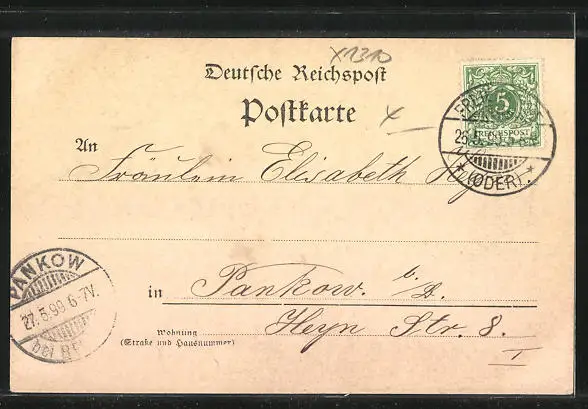 X1310
Deutsche Reichspost
Postkarte
An
Fräulein Elisabeth
5
REICHSPOST
26.5.99
* (ODER). *
PANKOW
27.5.99 6-7V.
bei
in Pankow. b.
Heyn Str. 8.
I
Wohnung
(Straße und Hausnummer)